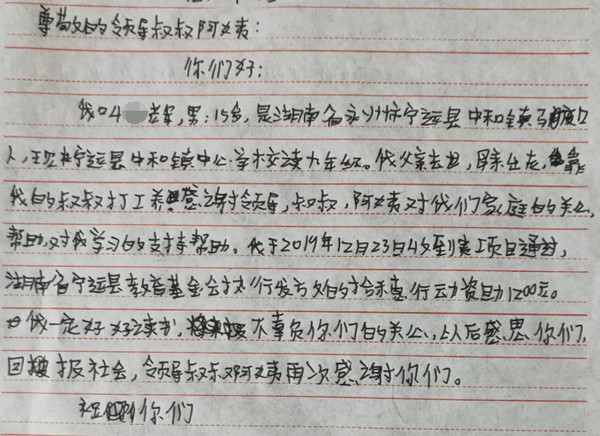 尊敬的领导叔叔阿姨：
你们好：
我叫 男，15岁，是湖南省永州市宁远县中和镇
人，现在宁远县中和镇中心学校读九年级。我父亲去世，靠
我的叔叔打工养 感谢领导，叔叔，阿姨对我们家庭的关心，
帮助，对我学习的支持帮助。我于2019年12月23日收到 项目通过，
湖南省宁远县教育基金会 行发放的 惠行动资助1200元。
我一定好好读书，不辜负你们的关心，以后感恩你们，
回报社会，领导叔叔阿姨再次感谢你们。
祝 你们